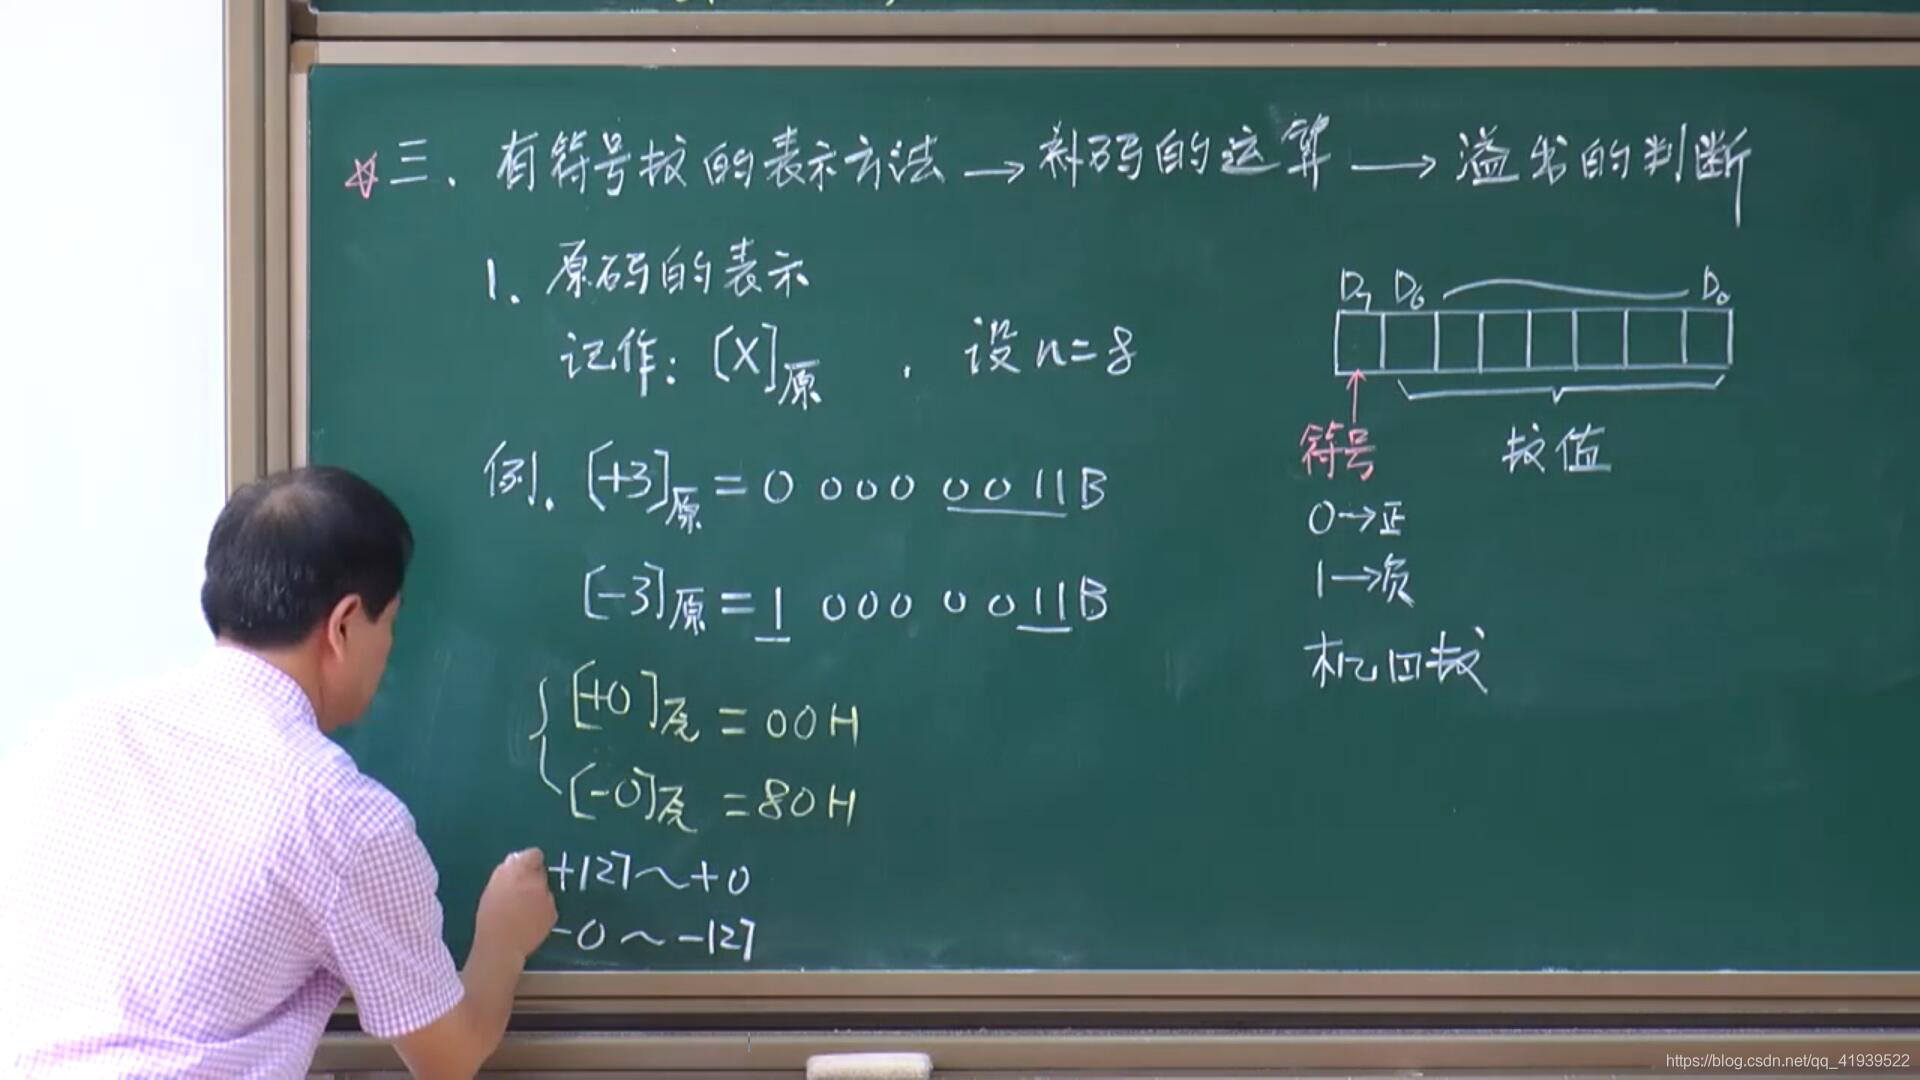 ☆三. 有符号数的表示方法→补码的运算→溢出的判断
1. 原码的表示
记作: [X]原 . 设n=8
例. [+3]原 = 0 000 0011B
[-3]原 = 1 000 0011B
[+0]原 = 00H
[-0]原 = 80H
+127～+0
-0～-127
D7 D6 D0
符号 数值
0→正
1→负
机四数
https://blog.csdn.net/qq_41939522